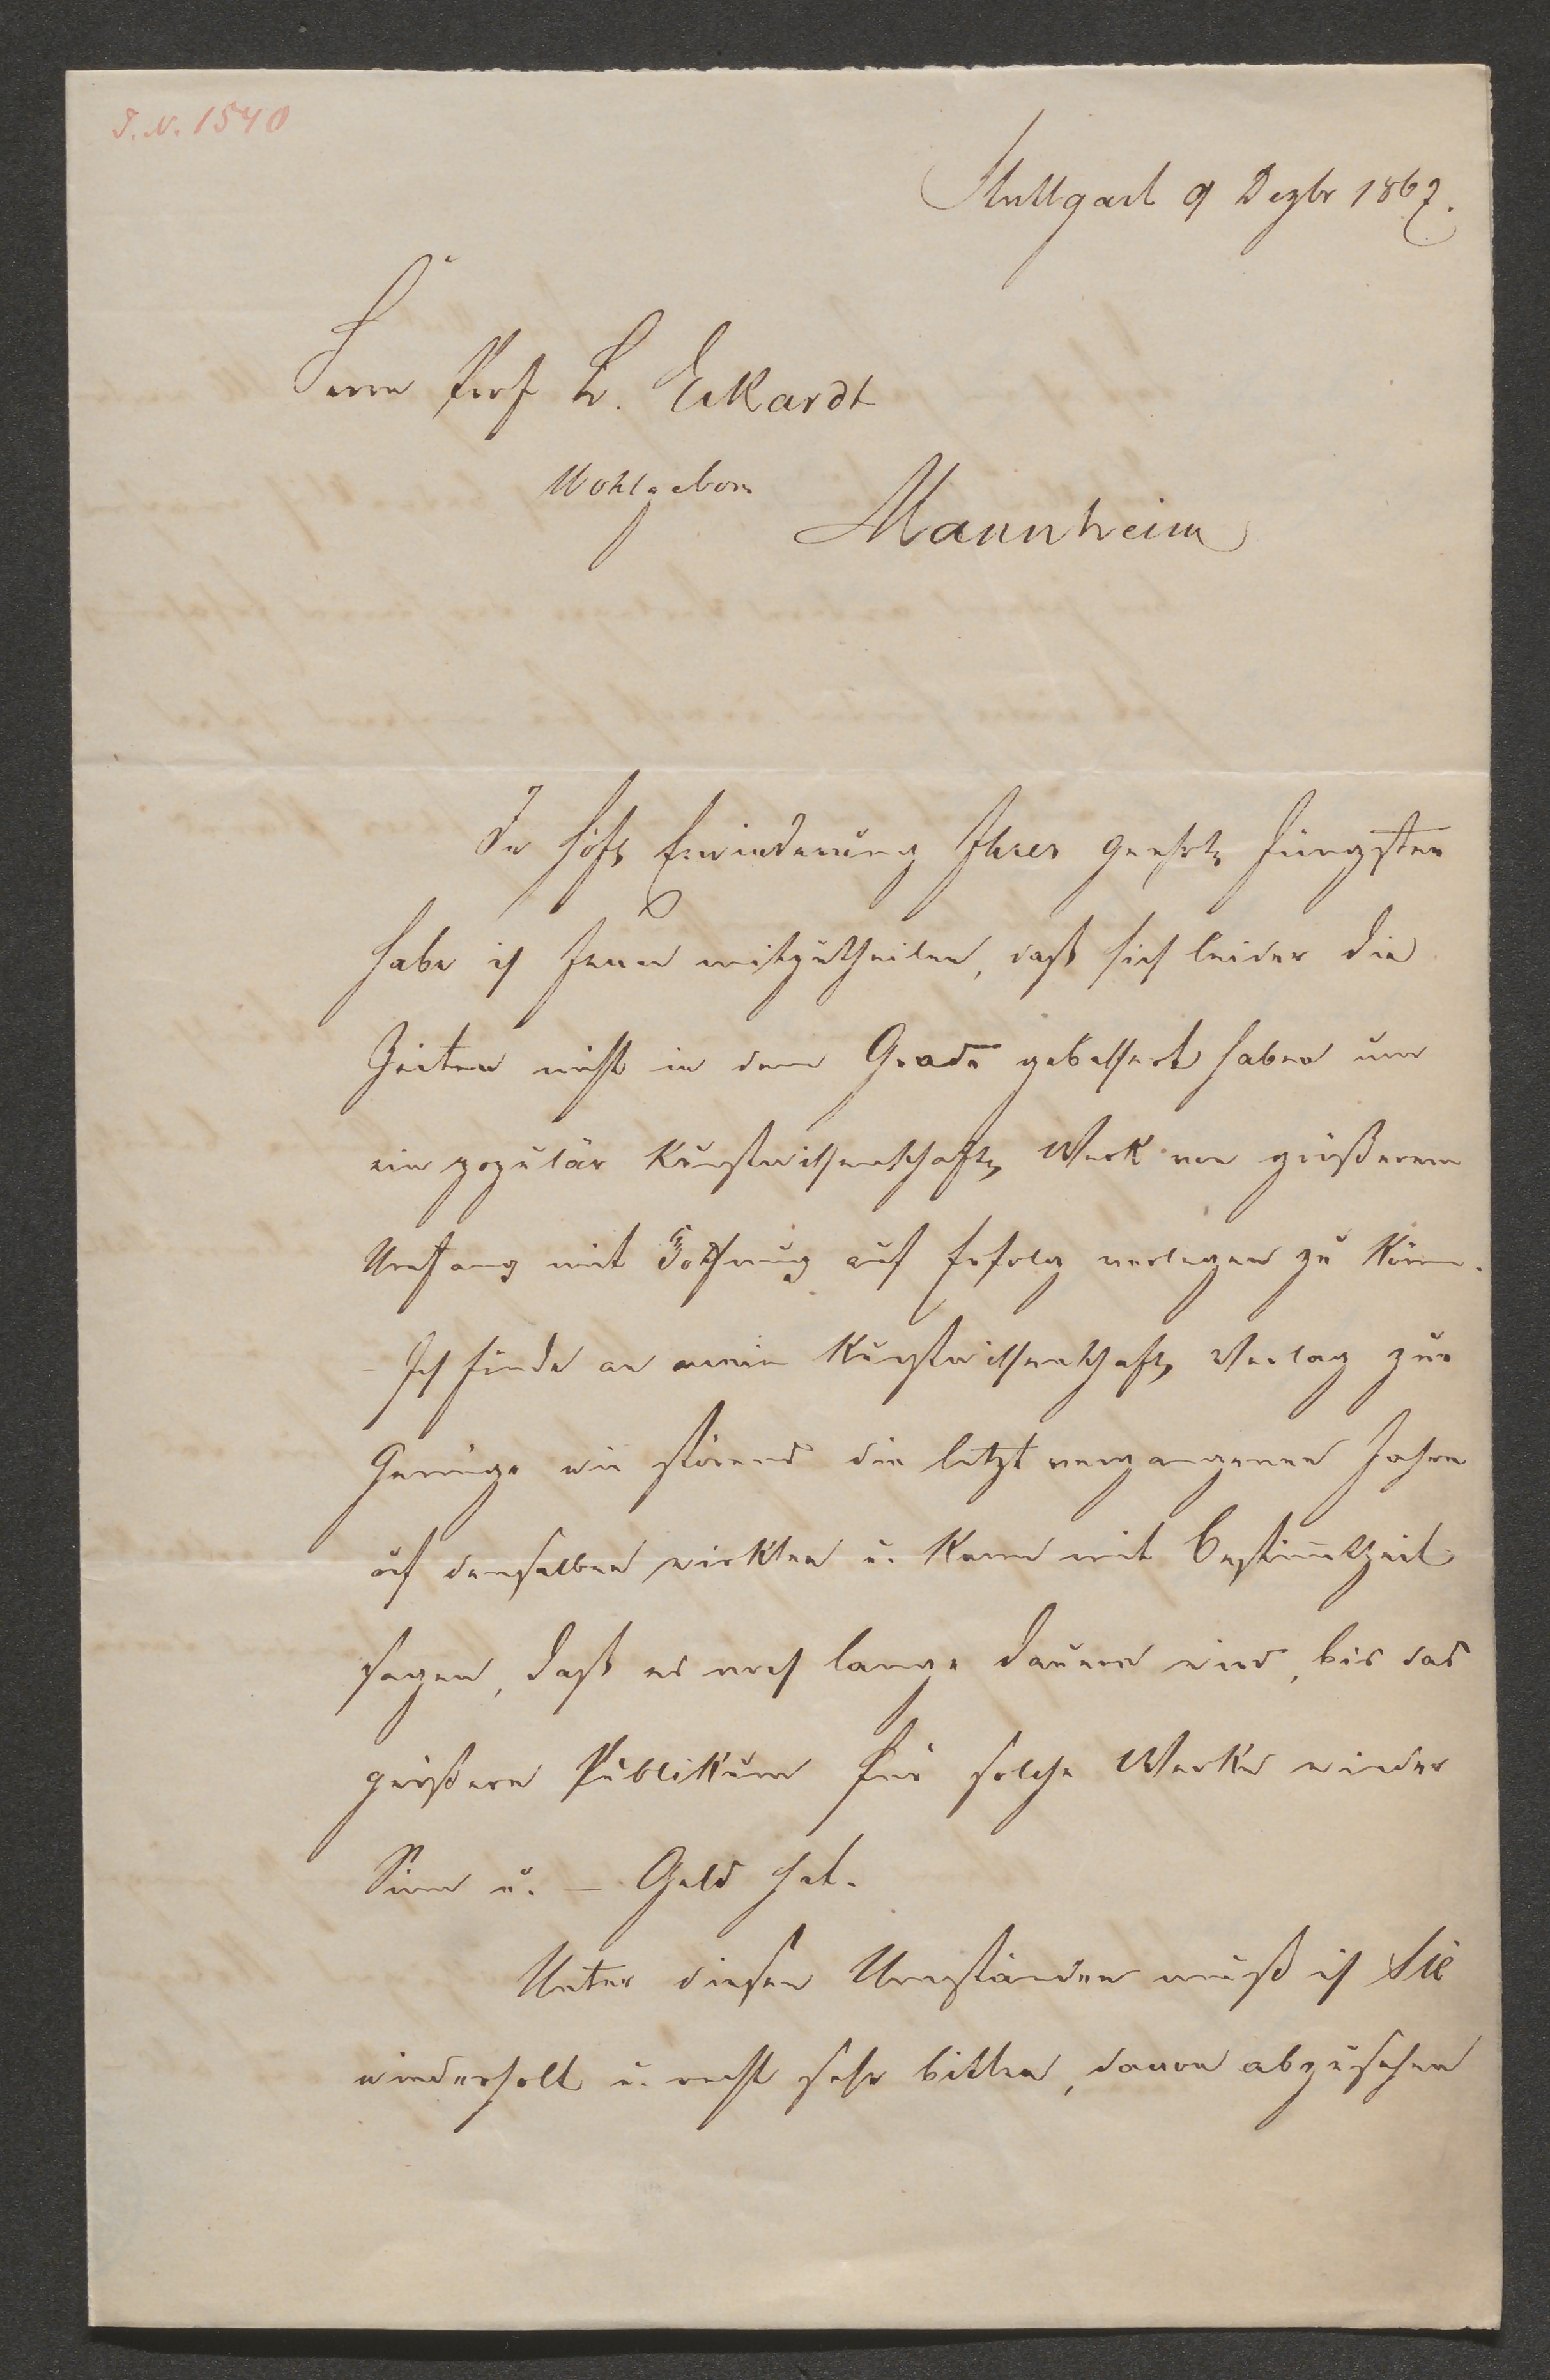 J. N. 1540
Stuttgart 9 Dezbr 1867.
Herrn Prof L. Eckardt
Wohlgeborn
Mannheim
In höfl Erwiederung Ihres geehrten Jüngsten
habe ich Ihnen mitzutheilen, daß sich leider die
Zeiten nicht in dem Grade gebessert haben um
ein populär kunstwissenschaftl Werk von größerem
Umfang mit Hoffnung auf Erfolg verlegen zu könen.
– Ich finde an mein kunstwissenschaftl Verlag zur
Genüge wie störend die letzt vergangenen Jahre
auf denselben wirkten u. kann mit Bestimmtheit
sagen, daß es noch lange dauern wird, bis das
größere Publikum für solche Werke wieder
Sinn u. – Geld hat.
Unter diesen Umständen muß ich Sie
wiederholt u. recht sehr bitten, davon abzusehen